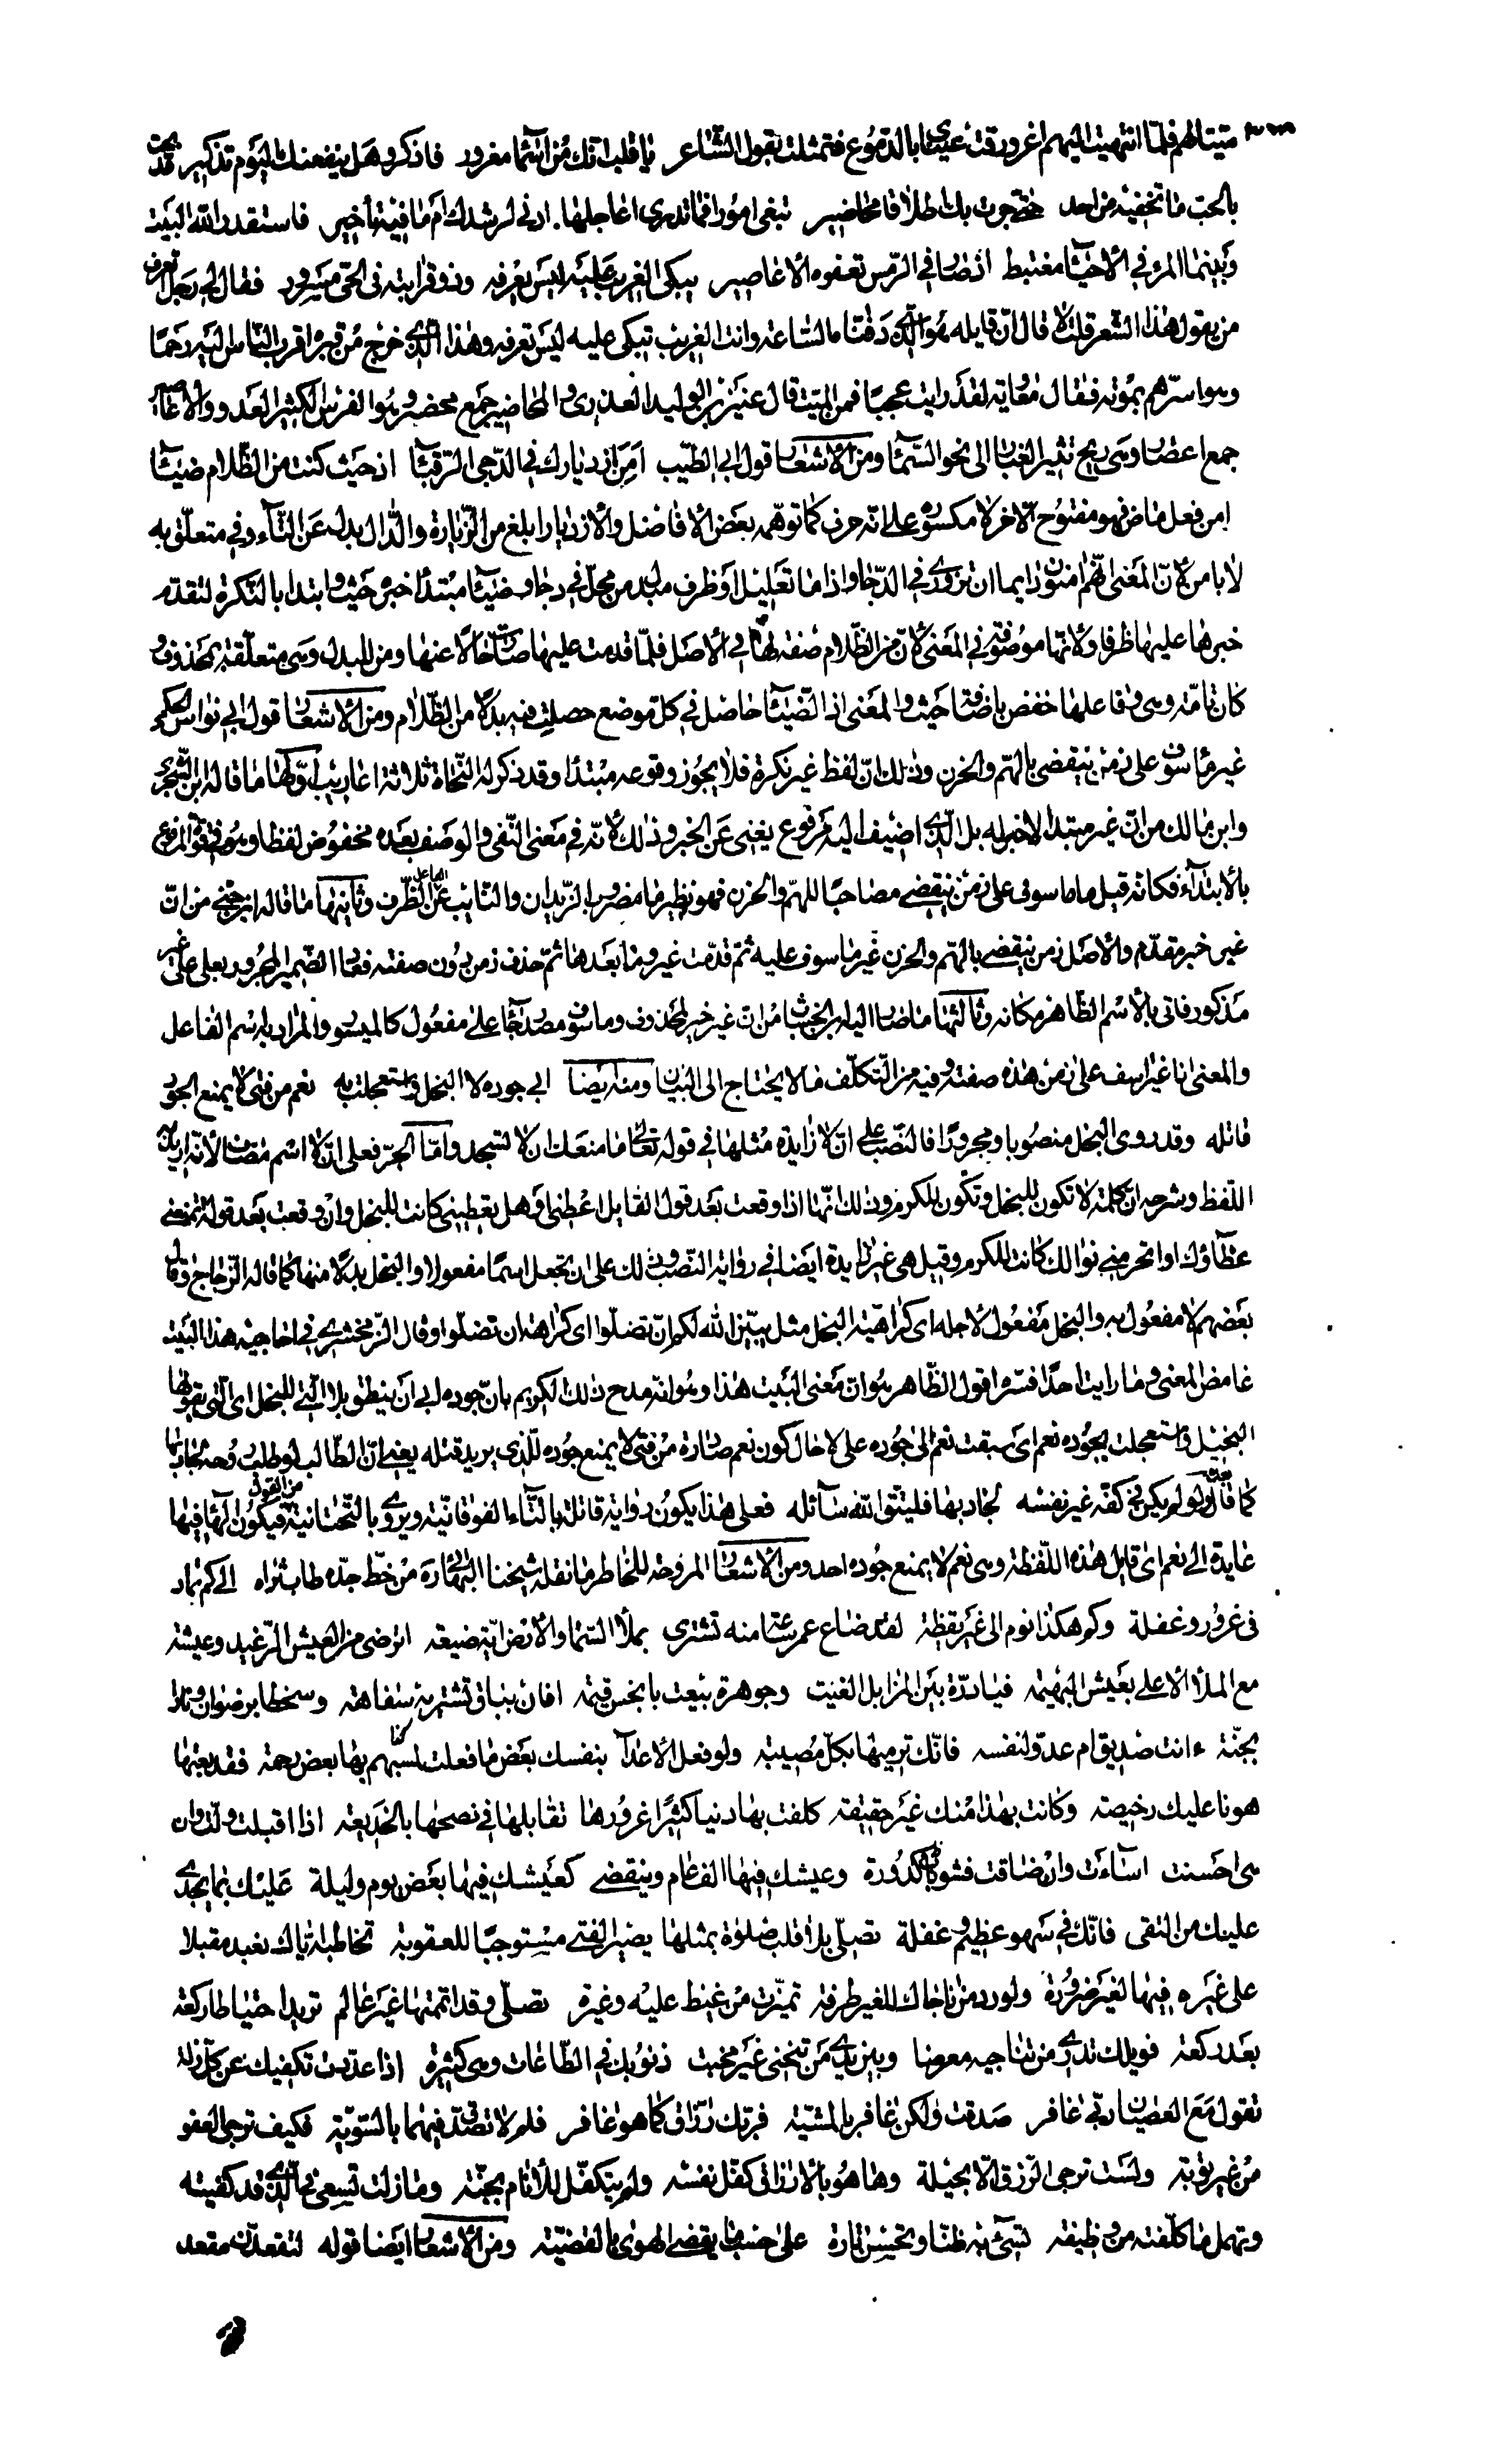 ميتا لهم فلمّا انتهيت اليهم اغرورقت عيناي بالدموع فتمثلت بقول الشاعر يا قلب انّك من اسماء مغرور فاذكر وهل ينفعنك اليوم تذكير قد بحت
بالحب ما تخفيه من احد حتى جرت بك اطلاقا محاضير تبغي امورا فما تدري اعاجلها ادنى لرشدك ام ما فيه تاخير فاستقدر الله البيت
وبينما المرء في الاحياء مغتبط اذ صار في الرمس تعفوه الاعاصير يبكي الغريب عليه ليس يعرفه وذو قرابته في الحي مسرور فقال لي رجل تعرف
من يقول هذا الشعر قلت لا قال انّ قايله هو الذي دفنا الساعة وانت الغريب تبكي عليه ليس تعرفه وهذا الذي خرج من قبره اقرب الناس اليه رحما
وهو اسرّهم بموته فقال معاوية لقد رايت عجبا فمن الميت قال عنيز بن الوليد العذري والمحاضير جمع محضير وهو الفرس الكثير العدو والاعاصير
جمع اعصار وهي ريح تثير الغبار الى نحو السماء ومن الاشعار قول ابي الطيب امن ازديارك في الدجى الرقباء اذ حيث كنت من الظلام ضياء
امن فعل ماض فهو مفتوح الاخر لا مكسوره على انّه حرف كما توهّمه بعض الافاضل والازديار ابلغ من الزيارة والدال بدل عن التاء وفي متعلق به
لا بامن لانّ المعنى انهم امنوا دايما ان تزوري في الدجى واذ اما تعليل او ظرف مبدل من محل في دجا وضياء مبتدأ خبره حيث وابتدا بالنكرة لتقدم
خبرها عليها ظرفا ولانّها موصوفة في المعنى لانّ من الظلام صفة لها في الاصل فلمّا قدمت عليها صارت حالا عنها ومن للبدل وهي متعلقة بمحذوف
كان تامّة وهي وفاعلها خفض باضافة حيث والمعنى اذ الضياء حاصل في كل موضع حصلت فيه بدلا من الظلام ومن الاشعار قول ابي نواس الحكمي
غير مأسوف على زمن ينقضي بالهمّ والحزن وذلك انّ لفظ غير نكرة فلا يجوز وقوعه مبتدأ وقد ذكر له النحاة ثلاثة اعاريب اوّلها ما قاله ابن الشجري
وابن مالك من انّ غير مبتدا لا خبر له بل الذي اضيف اليه مرفوع يغني عن الخبر وذلك لانّه في معنى النفي والوصف بعده مخفوض لفظا وهو في قوة المرفوع
بالابتداء فكانه قيل ما ماسوف على زمن ينقضي مصاحبا للهمّ والحزن فهو نظير ما مضروب الزيدان والنائب عن الفاعل الظرف وثانيها ما قاله ابن جني من انّ
غير خبر مقدّم والاصل زمن ينقضي بالهمّ والحزن غير ماسوف عليه ثم قدّمت غير وما بعدها ثم حذف زمن دون صفته فعاد الضمير المجرور بعلى على غير
مذكور فاتى بالاسم الظاهر مكانه وثالثها ما صار اليه ابن الخشاب من انّ غير خبر لمحذوف وماسوف مصدر جاء على مفعول كالميسور والمراد به اسم الفاعل
والمعنى انا غير اسف على زمن هذه صفته وفيه من التكلّف ما لا يحتاج الى البيان ومنه ايضا ابى جوده لا البخل واستعجلت به نعم من فتى لا يمنع الجود
قاتله وقد روي البخل منصوبا ومجرورا فالنصب على انّ لا زايدة مثلها في قوله تعالى ما منعك ان لا تسجد وامّا الجرّ فعلى انّ لا اسم مضاف لانّه اريد به
اللفظ وشرحه ان كلمة لا تكون للبخل وتكون للكرم وذلك انّها اذا وقعت بعد قول القايل اعطني او هل تعطيني كانت للبخل وان وقعت بعد قوله اتمنعني
عطاؤك او اتحرمني نوالك كانت للكرم وقيل هي غير زايدة ايضا في رواية النصب وذلك على ان تجعل اسما مفعولا والبخل بدلا منها كما قاله الزجاج وقال
بعضهم لا مفعول به والبخل مفعول لاجله اى كراهية البخل مثل يبيّن الله لكم ان تضلّوا اى كراهة ان تضلّوا وقال الزمخشري في احاجيه هذا البيت
غامض المعنى وما رايت احدا فسّره اقول الظاهر هو ان معنى البيت هذا وهو انّه مدح ذلك الكريم بانّ جوده ابى ان ينطق بلا التي للبخل اى التي يقولها
البخيل واستعجلت بجوده نعم اى سبقت نعم الى جوده على لا حال كون نعم صادرة من فتى لا يمنع جوده للّذي يريد قتله يعني انّ الطالب لو طلب روحه لجاد بها
كما قال ولو لم يكن في كفّه غير نفسه لجاد بها فليتّق الله سائله فعلى هذا يكون رواية قاتله بالتاء الفوقانيّة ويروى بالتحتانيّة من القول فيكون الهاء فيها
عايدة الى نعم اى قايل هذه اللفظة وهي نعم لا يمنع جوده احد ومن الاشعار المروحة للخاطر ما نقله شيخنا البهائي ره من خطّ جدّه طاب ثراه الى كم تماد
في غرور وغفلة وكم هكذا نوم الى غير يقظة لقد ضاع عمر ساعة منه تشترى بملأ السماء والارض اية ضيعة اترضى من العيش الرغيد وعيشة
مع الملأ الاعلى بعيش البهيمة فيا درّة بين المزابل القيت وجوهرة بيعت بابخس قيمة افان بباق تشتريه سفاهة وسخطا برضوان ونارا
بجنّة ءانت صديق ام عدوّ لنفسه فانّك ترميها بكلّ مصيبة ولو فعل الاعداء بنفسك بعض ما فعلت لمسّهم بها بعض رحمة فقد بعتها
هونا عليك رخيصة وكانت بهذا منك غير حقيقة كلفت بها دنيا كثيرا غرورها تقابلها في نصحها بالخديعة اذا اقبلت ولّت وان
هي احسنت اساءت وان ضاقت فثق بالكدورة وعيشك فيها الف عام وينقضي كعيشك فيها بعض يوم وليلة عليك بما يجدي
عليك من التقى فانّك في سهو عظيم وغفلة تصلّي بلا قلب صلوة بمثلها يصير الفتى مستوجبا للعقوبة تخاطبه اياك نعبد مقبلا
على غيره فيها لغير ضرورة ولو رد من ناجاك للغير طرفه تميّزت من غيظ عليه وغيرة تصلّي وقد اتممتها غير عالم تريد احتياطا ركعة
بعد ركعة فويلك تدري من تناجيه معرضا وبين يدي من تنحني غير مخبت ذنوبك في الطاعات وهي كثيرة اذا عدّت تكفيك عن كلّ زلة
تقول مع العصيان ربّي غافر صدقت ولكن غافر بالمشيّة فربّك رزّاق كما هو غافر فلم لا تصدّق فيهما بالسويّة فكيف ترجى العفو
من غير توبة ولست ترجى الرزق الّا بحيلة وها هو بالارزاق كفّل نفسه ولم يتكفّل للانام بجنّة وما زلت تسعى في الذي قد كفيته
وتهمل ما كلّفته من وظيفة تسيء به ظنّا وتحسن تارة على حسب ما يقضي الهوى بالقضيّة ومن الاشعار ايضا قوله لتقعدنّ مقعد